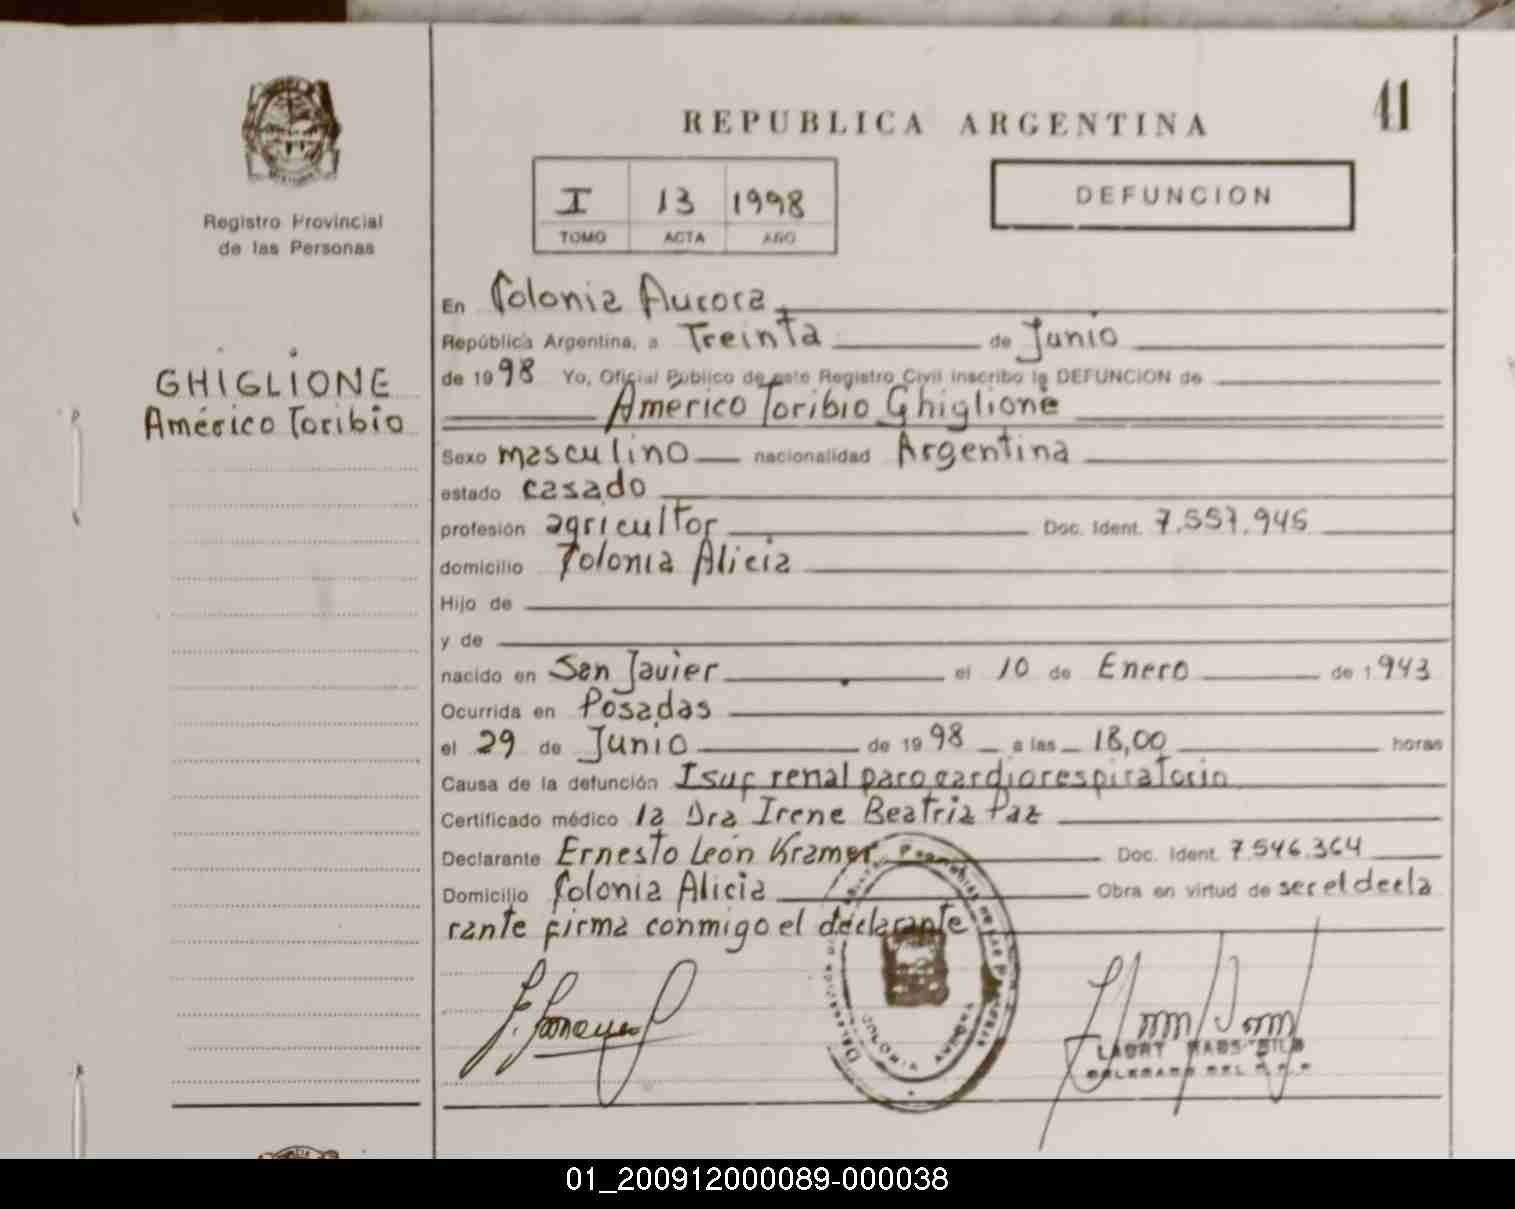 REPUBLICA ARGENTINA
41
I 13 1998
TOMO ACTA AÑO
DEFUNCION
Registro Provincial
de las Personas
GHIGLIONE
Américo Toribio
En Colonia Aurora
República Argentina, a Treinta de Junio
de 1998 Yo, Oficial Público de este Registro Civil inscribo la DEFUNCION de
Américo Toribio Ghiglione
Sexo masculino nacionalidad Argentina
estado casado
profesión agricultor Doc. Ident. 7.557.945
domicilio Colonia Alicia
Hijo de
y de
nacido en San Javier el 10 de Enero de 1943
Ocurrida en Posadas
el 29 de Junio de 1998 a las 18,00 horas
Causa de la defunción Isuf renal paro cardiorespiratorio
Certificado médico la Dra Irene Beatriz Paz
Declarante Ernesto León Kramer Doc. Ident. 7.546.364
Domicilio Colonia Alicia Obra en virtud de ser el decla
rante firma conmigo el declarante
COLONIA AURORA
01_200912000089-000038